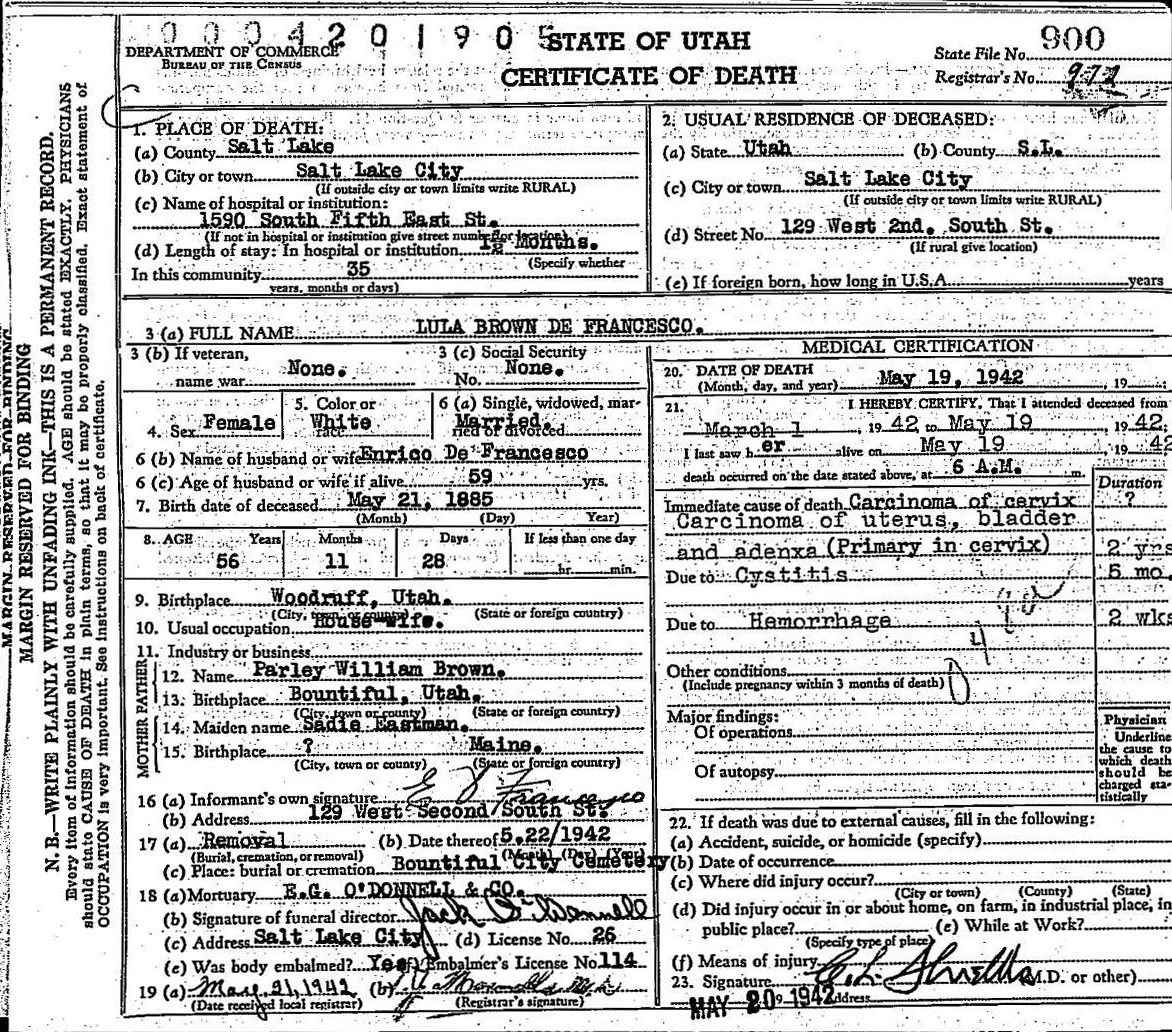 0004201905
STATE OF UTAH
CERTIFICATE OF DEATH
DEPARTMENT OF COMMERCE
BUREAU OF THE CENSUS
State File No. 900
Registrar's No. 972
MARGIN RESERVED FOR BINDING
MARGIN RESERVED FOR BINDING
N. B.—WRITE PLAINLY WITH UNFADING INK—THIS IS A PERMANENT RECORD.
Every item of information should be carefully supplied. AGE should be stated EXACTLY. PHYSICIANS
should state CAUSE OF DEATH in plain terms, so that it may be properly classified. Exact statement of
OCCUPATION is very important. See instructions on back of certificate.
1. PLACE OF DEATH:
(a) County Salt Lake
(b) City or town Salt Lake City
(If outside city or town limits write RURAL)
(c) Name of hospital or institution:
1590 South Fifth East St.
(If not in hospital or institution give street number or location)
(d) Length of stay: In hospital or institution Months.
(Specify whether
In this community 35
years, months or days)
2. USUAL RESIDENCE OF DECEASED:
(a) State Utah (b) County S.L.
(c) City or town Salt Lake City
(If outside city or town limits write RURAL)
(d) Street No. 129 West 2nd. South St.
(If rural give location)
(e) If foreign born, how long in U.S.A. years
3 (a) FULL NAME LULA BROWN DE FRANCESCO.
3 (b) If veteran, name war None.
3 (c) Social Security No. None.
4. Sex Female
5. Color or race White
6 (a) Single, widowed, married or divorced Married.
6 (b) Name of husband or wife Enrico De Francesco
6 (c) Age of husband or wife if alive 59 yrs.
7. Birth date of deceased May 21, 1885
(Month) (Day) Year)
8. AGE Years Months Days If less than one day
56 11 28 hr. min.
9. Birthplace Woodruff, Utah.
(City, town or county) (State or foreign country)
10. Usual occupation House-wife.
11. Industry or business
FATHER
12. Name Parley William Brown.
13. Birthplace Bountiful, Utah.
(City, town or county) (State or foreign country)
MOTHER
14. Maiden name Sadie Eastman.
15. Birthplace ? Maine.
(City, town or county) (State or foreign country)
16 (a) Informant's own signature
(b) Address 129 West Second South St.
17 (a) Removal (b) Date thereof 5.22/1942
(Burial, cremation, or removal) (Month) (Day) (Year)
(c) Place: burial or cremation Bountiful City Cemetery
18 (a) Mortuary E.G. O'DONNELL & CO.
(b) Signature of funeral director Jack O'Donnell
(c) Address Salt Lake City (d) License No. 26
(e) Was body embalmed? Yes (f) Embalmer's License No. 114
19 (a) May 21, 1942 (b)
(Date received local registrar) (Registrar's signature)
MEDICAL CERTIFICATION
20. DATE OF DEATH
(Month, day, and year) May 19, 1942, 19
21. I HEREBY CERTIFY, That I attended deceased from
March 1, 19 42 to May 19, 19 42;
I last saw h er alive on May 19, 19 42
death occurred on the date stated above, at 6 A.M. m.
Duration
Immediate cause of death Carcinoma of cervix ?
Carcinoma of uterus, bladder
and adenxa (Primary in cervix) 2 yrs
Due to Cystitis 5 mo.
Due to Hemorrhage 2 wks
Other conditions
(Include pregnancy within 3 months of death)
Major findings:
Of operations
Of autopsy
Physician
Underline
the cause to
which death
should be
charged sta-
tistically
22. If death was due to external causes, fill in the following:
(a) Accident, suicide, or homicide (specify)
(b) Date of occurrence
(c) Where did injury occur?
(City or town) (County) (State)
(d) Did injury occur in or about home, on farm, in industrial place, in
public place? (e) While at Work?
(Specify type of place)
(f) Means of injury
23. Signature Shields M.D. or other)
MAY 20 1942 Address